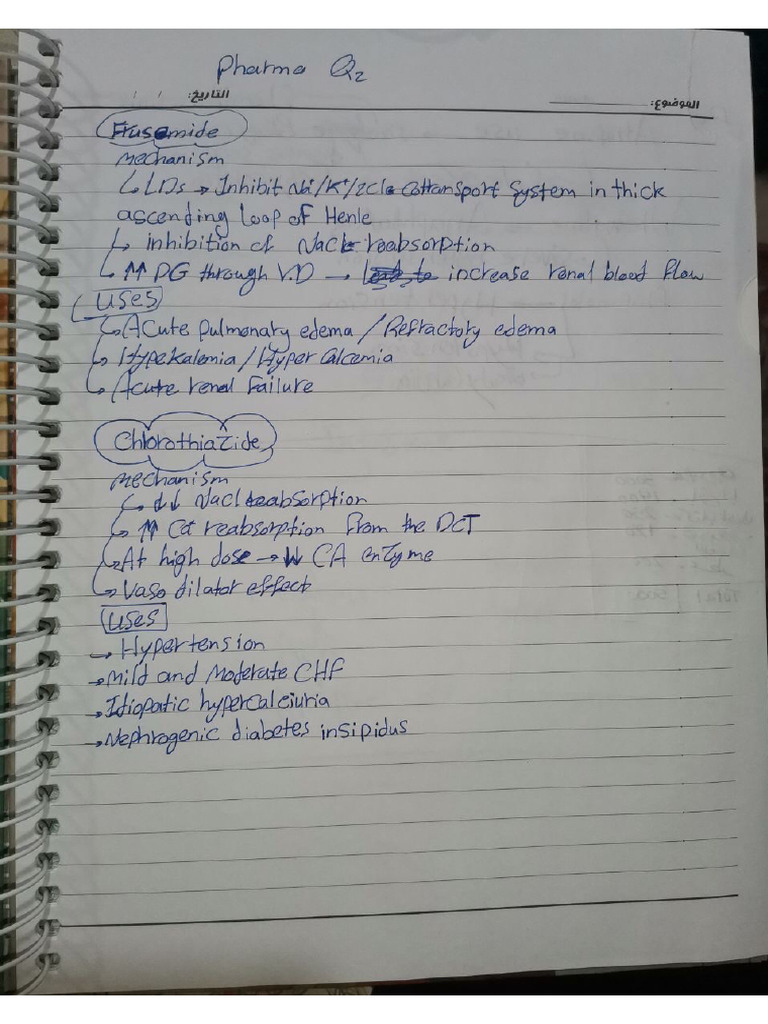 Pharma Q2
التاريخ: / /
الموضوع:
Frusemide
mechanism
↳ LDs → Inhibit Na+/K+/2cl- Cotransport System in thick
ascending loop of Henle
↳ inhibition of Nacl reabsorption
↳ ↑↑ PG through V.D → increase renal blood flow
uses
↳ Acute pulmonary edema / Refractory edema
↳ Hyperkalemia / Hyper Calcemia
↳ Acute renal Failure
Chlorothiazide
mechanism
↳ ↓↓ Nacl reabsorption
↳ ↑↑ Ca reabsorption from the DCT
↳ At high dose → ↓↓ CA enzyme
↳ Vaso dilator effect
uses
→ Hypertension
→ Mild and Moderate CHF
→ Idiopatic hypercalciuria
→ Nephrogenic diabetes insipidus